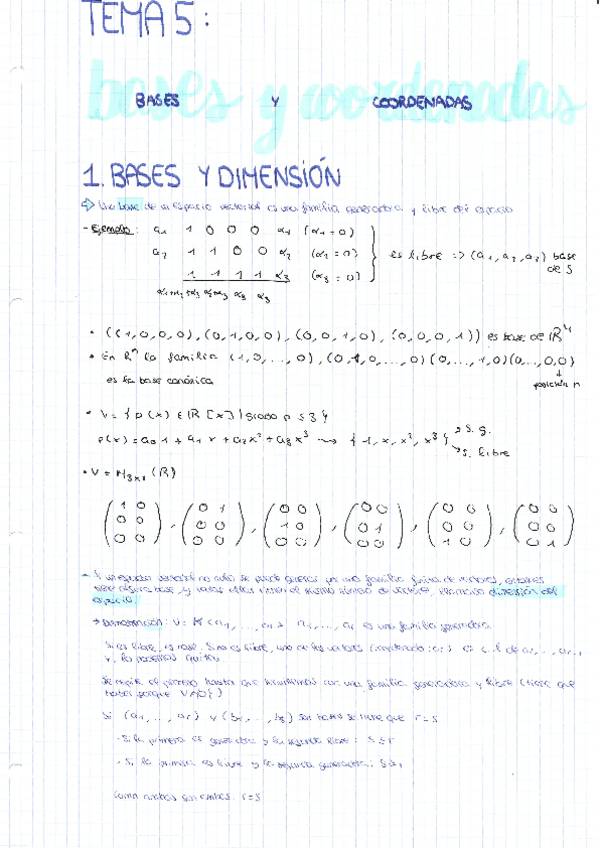 TEMA 5:
bases y coordenadas
BASES Y COORDENADAS
1. BASES Y DIMENSIÓN
⇨ Una base de un espacio vectorial es una familia generadora y libre del espacio
- Ejemplo: a₁ 1 0 0 0 α₁ (α₁=0)
a₂ 1 1 0 0 α₂ (α₂=0)
1 1 1 1 α₃ (α₃=0)
es libre => (a₁, a₂, a₃) base de S
• ((1,0,0,0), (0,1,0,0), (0,0,1,0), (0,0,0,1)) es base de ℝ⁴
• En ℝⁿ la familia (1,0,...,0), (0,1,0,...,0) (0,...,1,0)(0,...,0,0)
posición n
es la base canónica
• V = { p(x) ∈ ℝ[x] | grado p ≤ 3 }
p(x) = a₀1 + a₁x + a₂x² + a₃x³ ⇝ {1, x, x², x³} s. g.
s. libre
• V = M₃ₓ₂(ℝ)
(1 0 / 0 0 / 0 0), (0 1 / 0 0 / 0 0), (0 0 / 1 0 / 0 0), (0 0 / 0 1 / 0 0), (0 0 / 0 0 / 1 0), (0 0 / 0 0 / 0 1)
- Si un espacio vectorial no nulo se puede generar por una familia finita de vectores, entonces
tiene alguna base, y todas ellas tienen el mismo número de vectores, llamado dimensión del
espacio.
→ Demostración: V = a₁, ..., a₁, ..., es una familia generadora.
Si es libre, es base. Si no es libre, uno de los vectores es c.l. de a₁, ...,
lo podemos quitar.
Se repite el proceso hasta que terminamos con una familia generadora y libre (tiene que
haber porque V≠{0})
Si (a₁, ..., ar) y (b₁, ..., bs) son bases se tiene que r=s
- Si la primera es generadora y la segunda libre: s≤r
- Si la primera es libre y la segunda generadora: s≥r
Como ambas son ambas: r=s